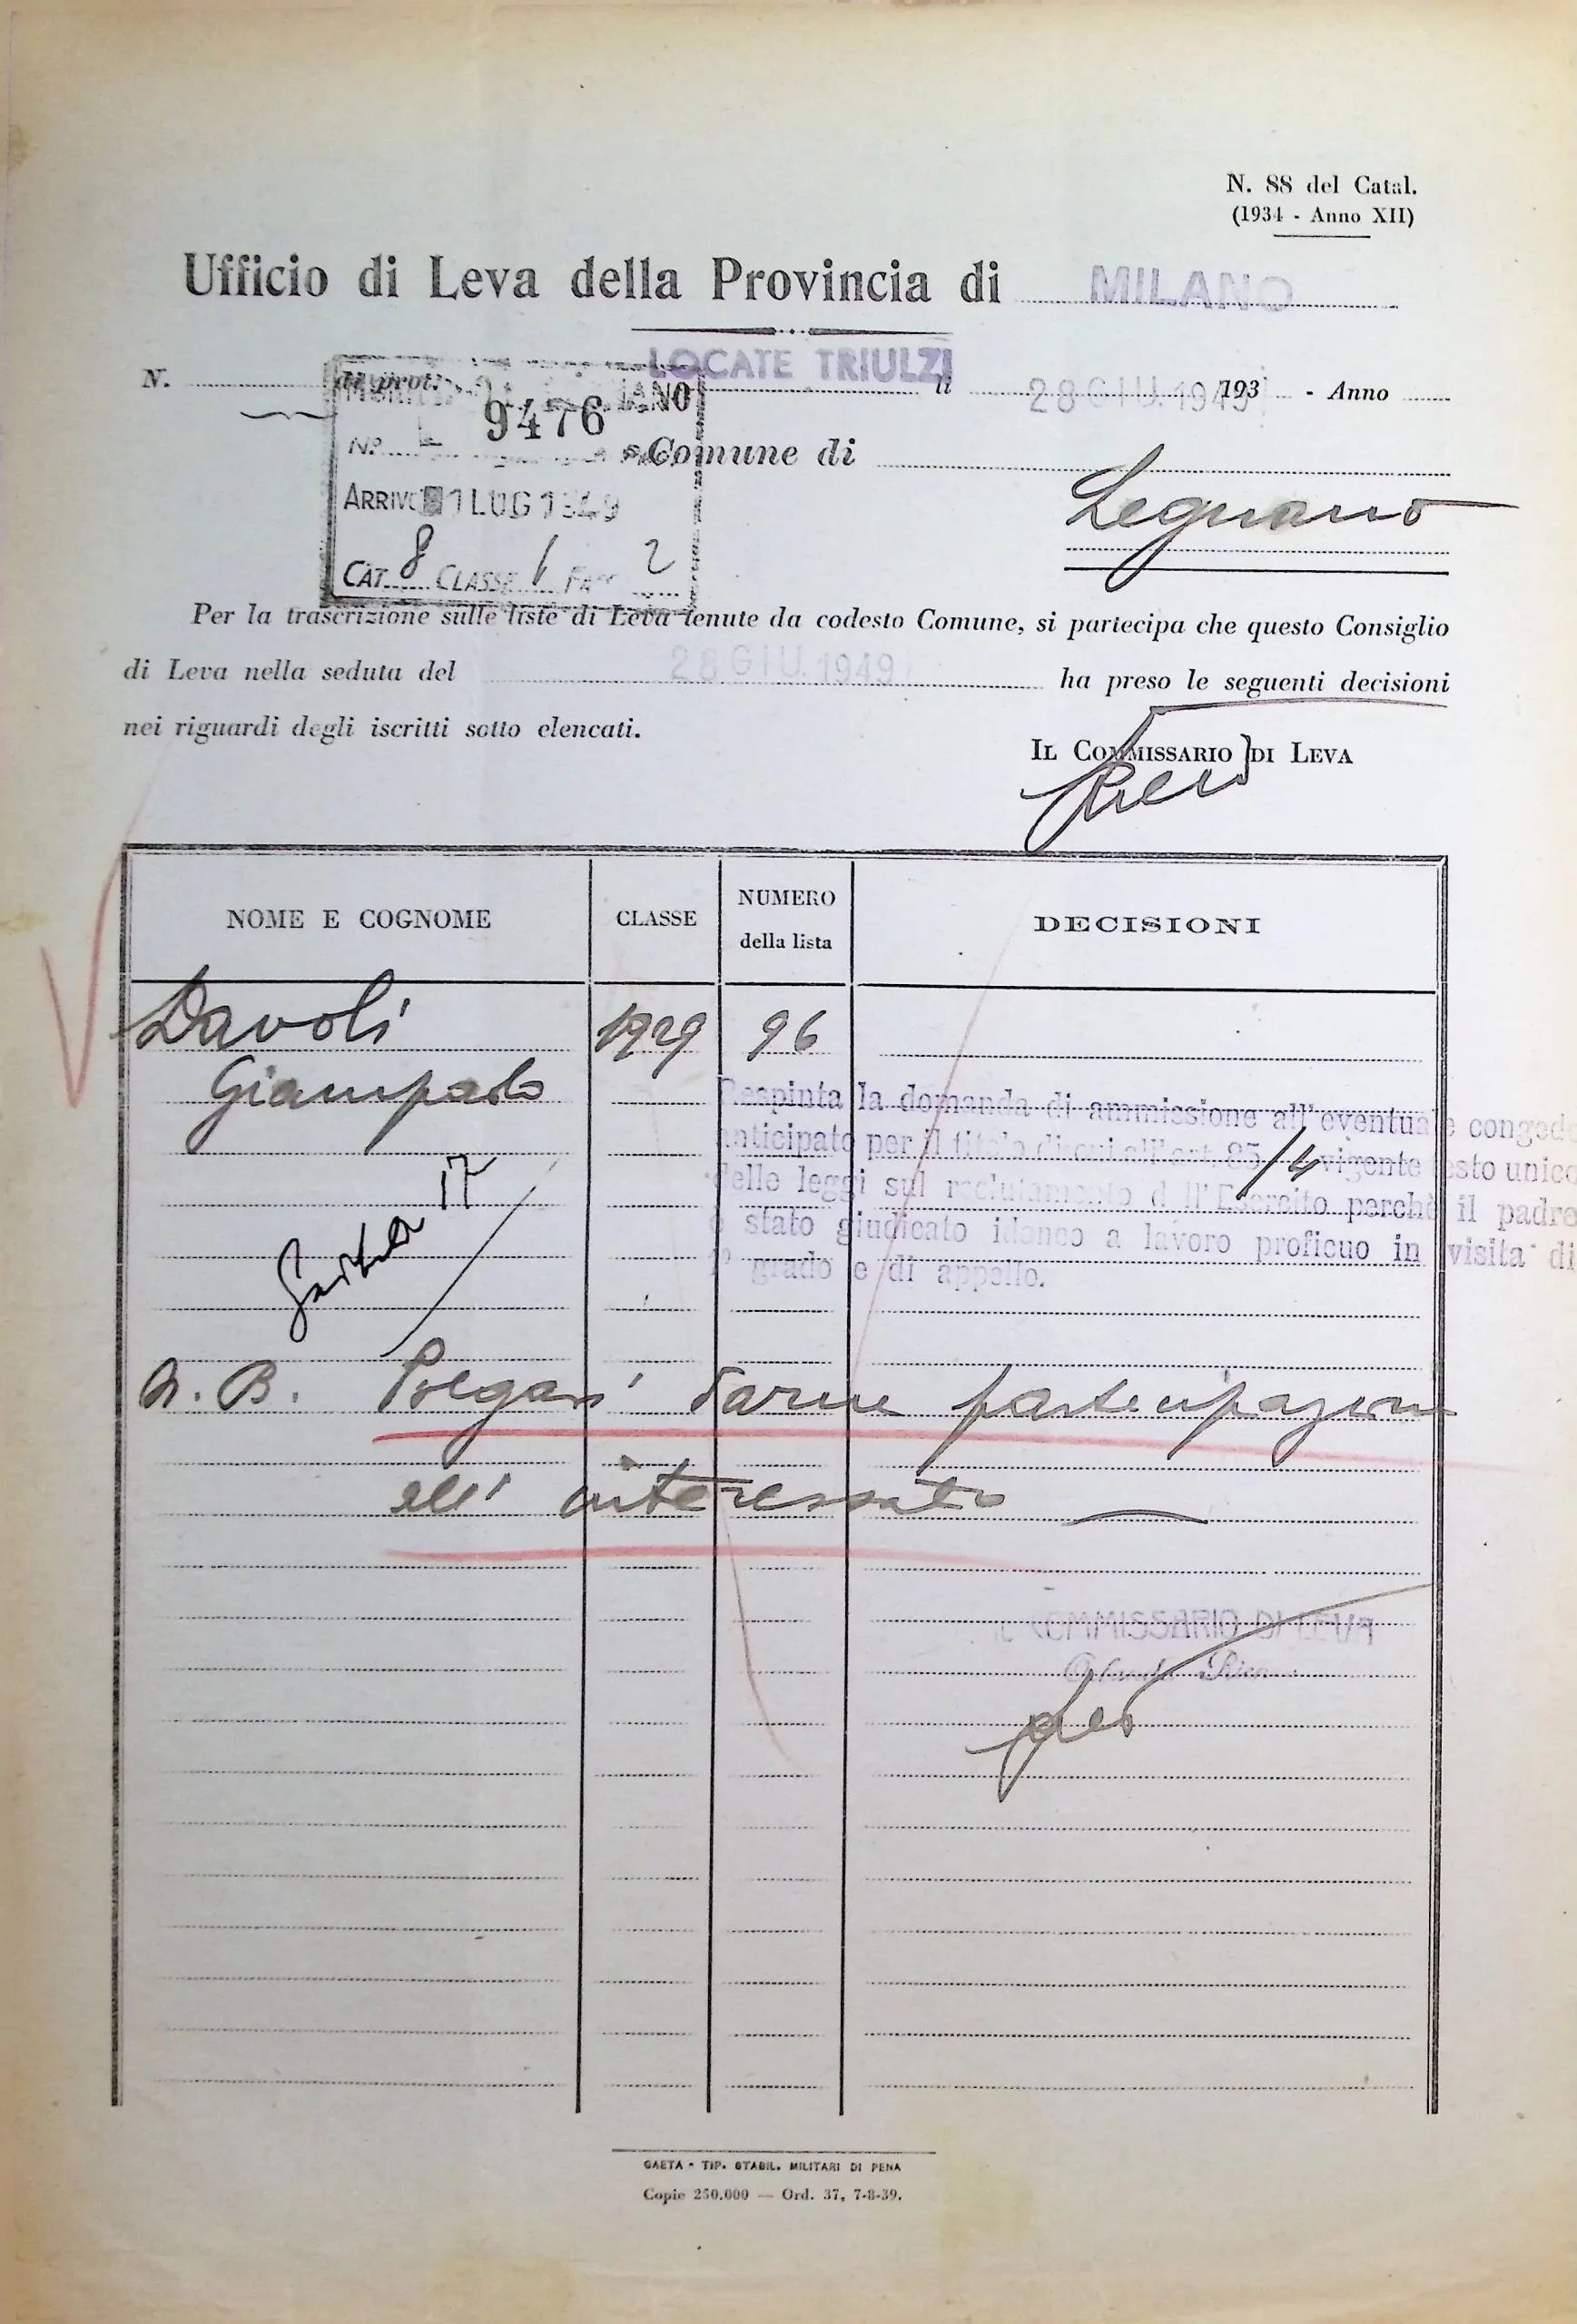 N. 88 del Catal.
(1934 - Anno XII)
Ufficio di Leva della Provincia di MILANO
LOCATE TRIULZI
N. di prot. li 28 GIU. 1949 193 - Anno
9476
N.º
Comune di
Legnano
ARRIVO 1 LUG 1949
CAT. 8 CLASSE 1 FASC. 2
Per la trascrizione sulle liste di Leva tenute da codesto Comune, si partecipa che questo Consiglio
di Leva nella seduta del 28 GIU. 1949 ha preso le seguenti decisioni
nei riguardi degli iscritti sotto elencati.
IL COMMISSARIO DI LEVA
NOME E COGNOME CLASSE NUMERO della lista DECISIONI
Davoli 1929 96
Giampaolo
Respinta la domanda di ammissione all'eventuale congedo
anticipato per il titolo di cui all'art. 85/4 vigente testo unico
delle leggi sul reclutamento dell'Esercito perchè il padre
è stato giudicato idoneo a lavoro proficuo in visita di
1º grado e di appello.
17
N. B. Pregasi darne partecipazione
all'interessato
IL COMMISSARIO DI LEVA
GAETA - TIP. STABIL. MILITARI DI PENA
Copie 250.000 — Ord. 37, 7-8-39.